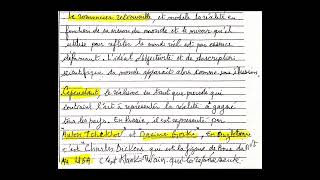 Le romancier retravaille, et modèle la réalité en
fonction de sa vision du monde et le miroir qu'il
utilise pour refléter le monde réel est par essence
déformant. L'idéal d'objectivité et de description
scientifique du monde apparaît alors comme une illusion.
Cependant, le réalisme en tant que procédé qui
contraint l'art à représenter la réalité a gagné
tous les pays. En Russie, il est représenté par
Anton Tchekhov et Maxime Gorki, En Angleterre
c'est Charles Dickens qui est la figure de
Au USA c'est Twain qui le représente